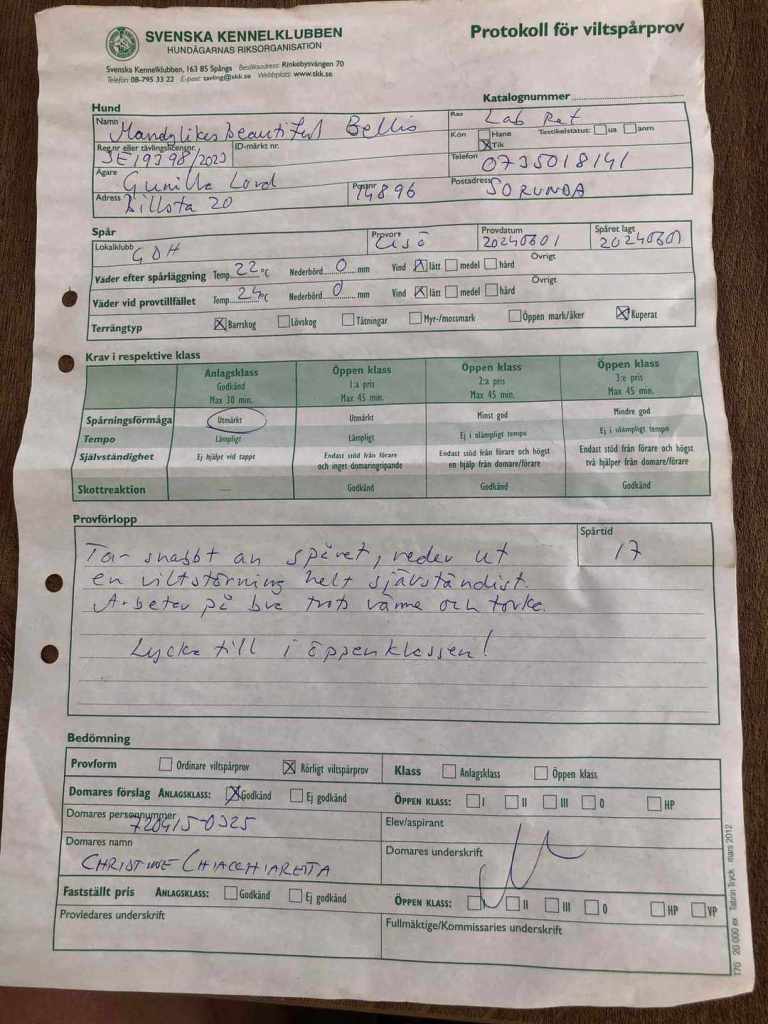 SVENSKA KENNELKLUBBEN
HUNDÄGARNAS RIKSORGANISATION
Svenska Kennelklubben, 163 85 Spånga Besöksadress: Rinkebysvängen 70
Telefon 08-795 33 22 E-post: tavling@skk.se Webbplats: www.skk.se
Protokoll för viltspårprov
Katalognummer
Hund
Namn Mandylikes beautiful Bellis
Ras Lab Ret
Kön Hane Tik Testikelstatus: ua anm
Reg.nr eller tävlingslicensnr. SE19398/2023 ID-märkt nr.
Telefon 0735018141
Ägare Gunilla Lord
Adress Lillsta 20 Postnr 14896 Postadress SORUNDA
Spår
Lokalklubb GDH Provort Ösmo Provdatum 20240601 Spåret lagt 20240601
Väder efter spårläggning Temp. 22 °C Nederbörd 0 mm Vind lätt medel hård Övrigt
Väder vid provtillfället Temp. 24 °C Nederbörd 0 mm Vind lätt medel hård Övrigt
Terrängtyp Barrskog Lövskog Tätningar Myr-/mossmark Öppen mark/åker Kuperat
Krav i respektive klass
Anlagsklass Öppen klass Öppen klass Öppen klass
Godkänd 1:a pris 2:a pris 3:e pris
Max 30 min. Max 45 min. Max 45 min. Max 45 min.
Spårningsförmåga Utmärkt Utmärkt Minst god Mindre god
Tempo Lämpligt Lämpligt Ej i olämpligt tempo Ej i olämpligt tempo
Självständighet Ej hjälpt vid tappt Endast stöd från förare och inget domaringripande Endast stöd från förare och högst en hjälp från domare/förare Endast stöd från förare och högst två hjälper från domare/förare
Skottreaktion — Godkänd Godkänd Godkänd
Provförlopp
Spårtid 17
Tar snabbt an spåret, reder ut
en viltstörning helt självständigt.
Arbetar på bra trots värme och torka.
Lycka till i öppenklassen!
Bedömning
Provform Ordinare viltspårprov Rörligt viltspårprov Klass Anlagsklass Öppen klass
Domares förslag ANLAGSKLASS: Godkänd Ej godkänd ÖPPEN KLASS: I II III 0 HP
Domares personnummer 720415-0325 Elev/aspirant
Domares namn CHRISTINE CHIACCHIARETTA Domares underskrift
Fastställt pris ANLAGSKLASS: Godkänd Ej godkänd ÖPPEN KLASS: I II III 0 HP VP
Proviedares underskrift Fullmäktige/Kommissaries underskrift
170 20 000 ex Tabrin Tryck mars 2012